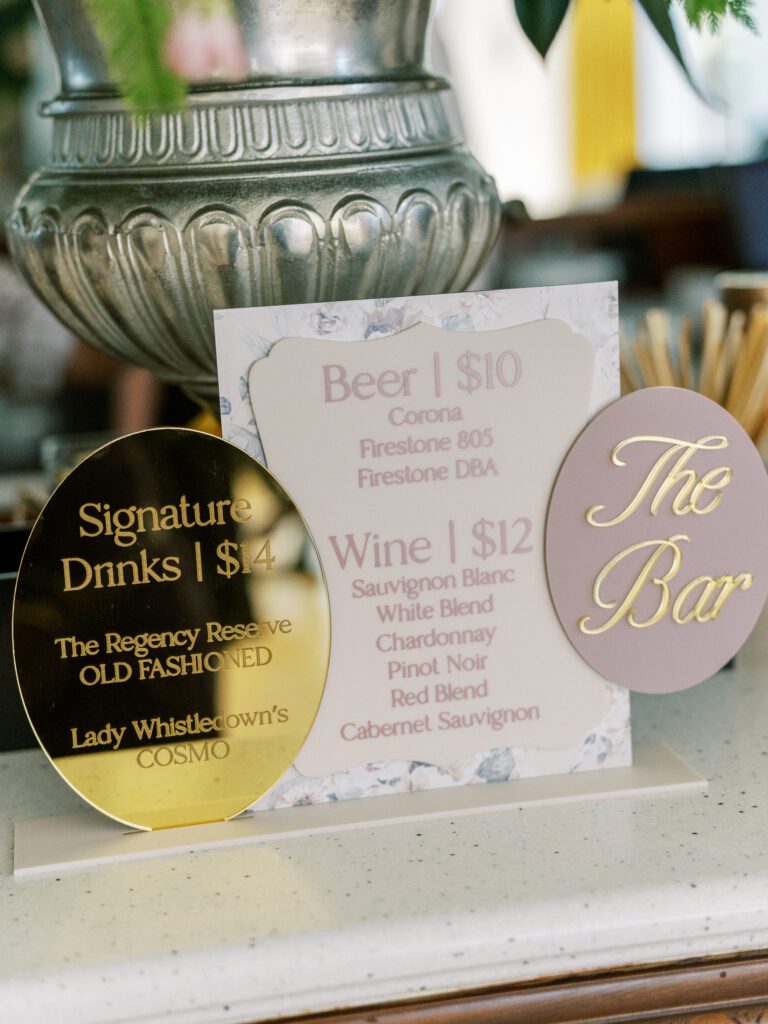 Signature
Drinks | $14
The Regency Reserve
OLD FASHIONED
Lady Whistledown's
COSMO
Beer | $10
Corona
Firestone 805
Firestone DBA
Wine | $12
Sauvignon Blanc
White Blend
Chardonnay
Pinot Noir
Red Blend
Cabernet Sauvignon
The
Bar